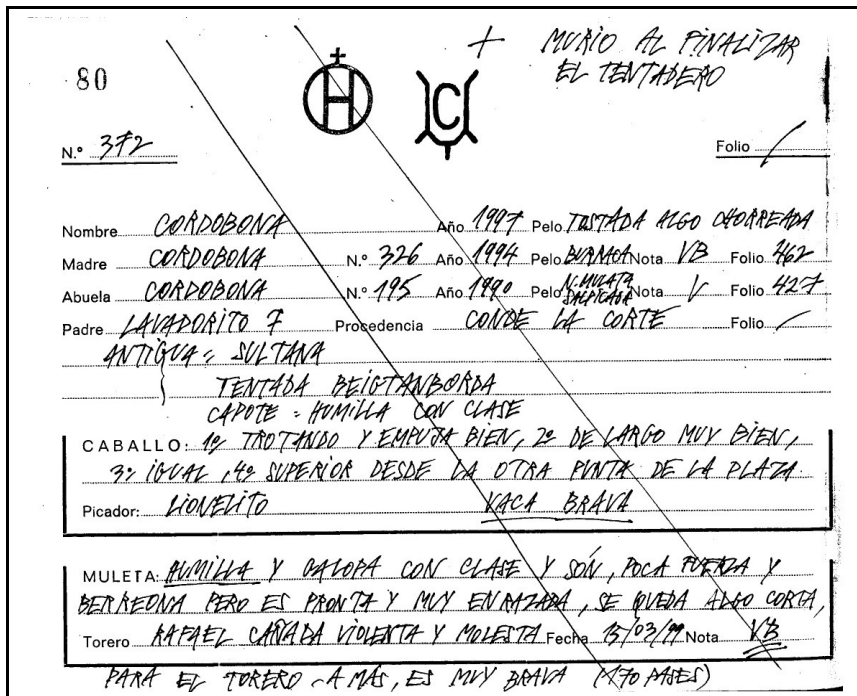 + MURIO AL FINALIZAR
EL TENTADERO
80
H
C
N.º 372 Folio /
Nombre CORDOBONA Año 1997 Pelo TOSTADA ALGO CHORREADA
Madre CORDOBONA N.º 326 Año 1994 Pelo BURRACA Nota VB Folio 462
Abuela CORDOBONA N.º 195 Año 1990 Pelo N. MULATA SALPICADA Nota V Folio 427
Padre LAVADORITO 7 Procedencia CONDE LA CORTE Folio /
ANTIGUA = SULTANA
TENTADA
CAPOTE = HUMILLA CON CLASE
CABALLO: 1º TROTANDO Y EMPUJA BIEN, 2º DE LARGO MUY BIEN,
3º IGUAL, 4º SUPERIOR DESDE LA OTRA PUNTA DE LA PLAZA.
Picador: LIONELITO VACA BRAVA
MULETA: HUMILLA Y GALOPA CON CLASE Y SÓN, POCA FUERZA Y
BERREONA PERO ES PRONTA Y MUY ENRAZADA, SE QUEDA ALGO CORTA,
Torero RAFAEL CAÑADA VIOLENTA Y MOLESTA Fecha 15/03/99 Nota VB
PARA EL TORERO - A MÁS, ES MUY BRAVA (170 PASES)